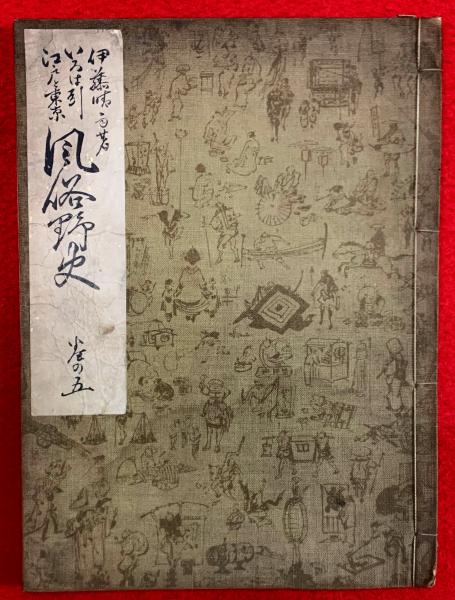 伊藤晴雨著
いろは引
江戸と東京
風俗野史
巻の五